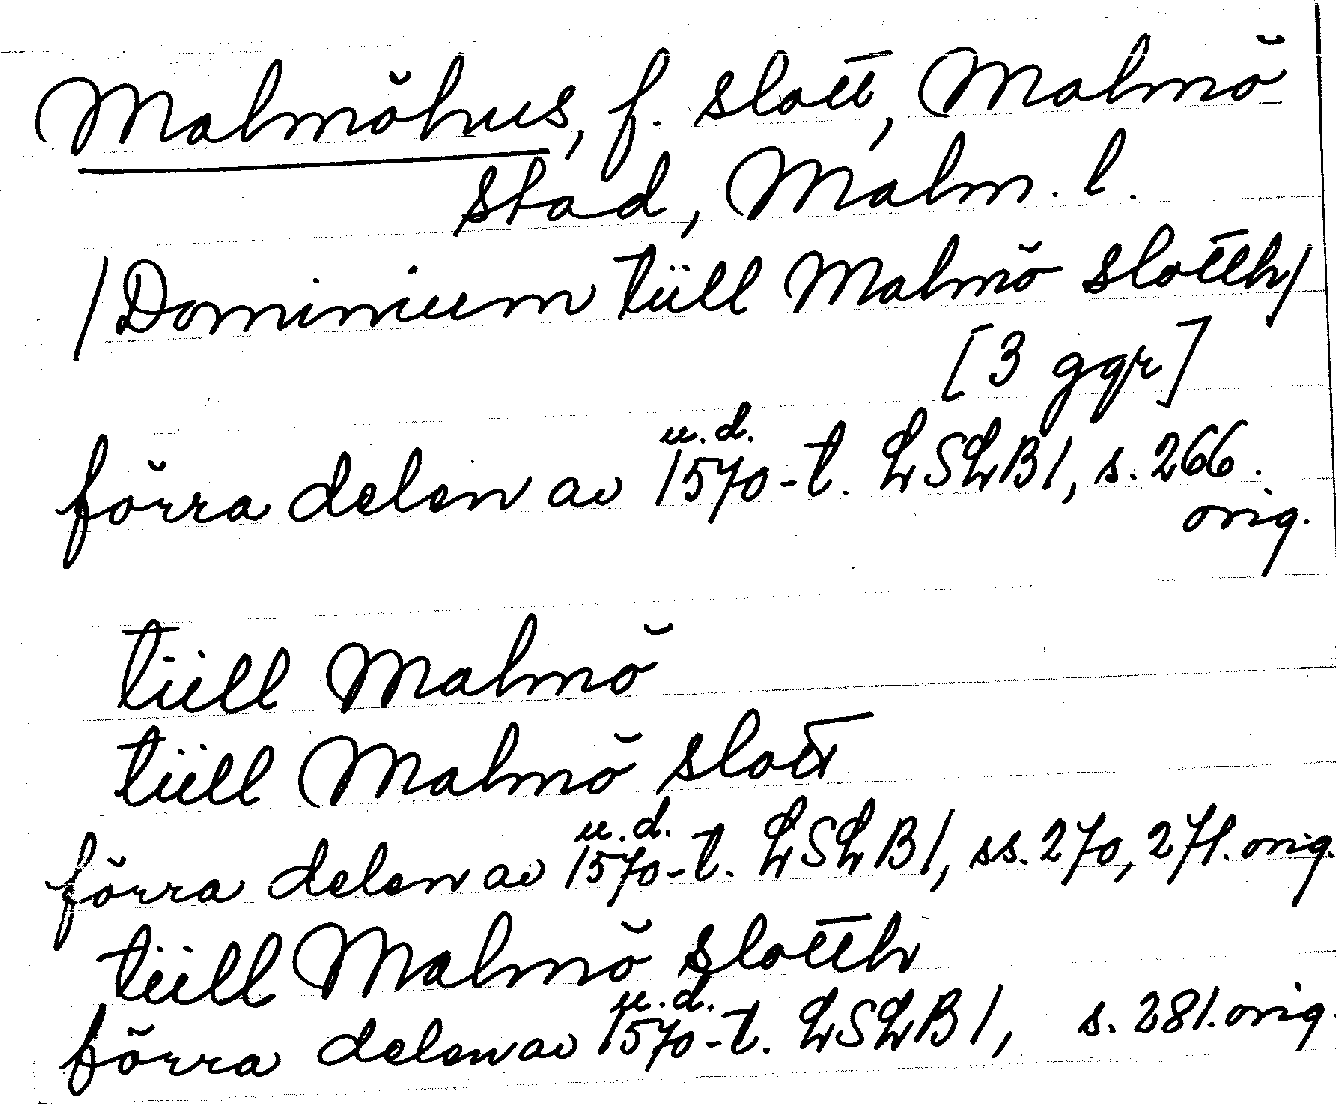 Malmöhus, f. slott, Malmö
stad, Malm. l.
/Dominium tüll Malmö slotth/
[3 ggr]
u.d.
förra delen av 1570-t. LSLB 1, s. 266.
orig.
tüll Malmö
tüll Malmö slott
u.d.
förra delen av 1570-t. LSLB 1, ss. 270, 271. orig.
tüll Malmö slotth
u.d.
förra delen av 1570-t. LSLB 1, s. 281. orig.